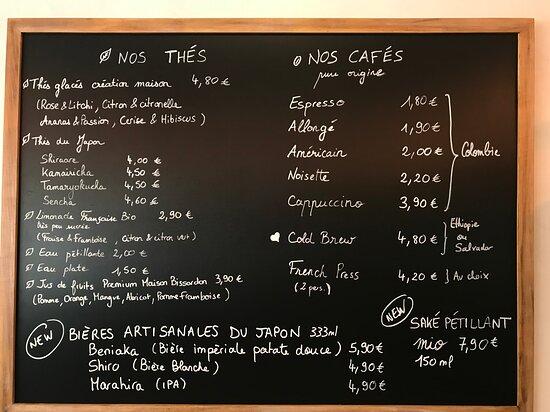 NOS THÉS
Thés glacés création maison 4,80 €
(Rose & Litchi, Citron & citronelle
Ananas & Passion, Cerise & Hibiscus)
Thés du Japon
Shiraore 4,00 €
Kamairicha 4,50 €
Tamaryokucha 4,50 €
Sencha 4,60 €
Limonade Française Bio 2,90 €
très peu sucrée
(Fraise & Framboise, citron & citron vert)
Eau pétillante 2,00 €
Eau plate 1,50 €
Jus de fruits Premium Maison Bissardon 3,90 €
(Pomme, Orange, Mangue, Abricot, Pomme-Framboise)
NOS CAFÉS
pure origine
Espresso 1,80 €
Allongé 1,90 €
Américain 2,00 €
Noisette 2,20 €
Cappuccino 3,90 €
Colombie
Cold Brew 4,80 €
Ethiopie
ou
Salvador
French Press 4,20 € Au choix
(2 pers.)
NEW
BIÈRES ARTISANALES DU JAPON 333ml
Beniaka (Bière impériale patate douce) 5,90 €
Shiro (Bière Blanche) 4,90 €
Marahira (IPA) 4,90 €
NEW
SAKÉ PÉTILLANT
mio 7,90 €
150 ml